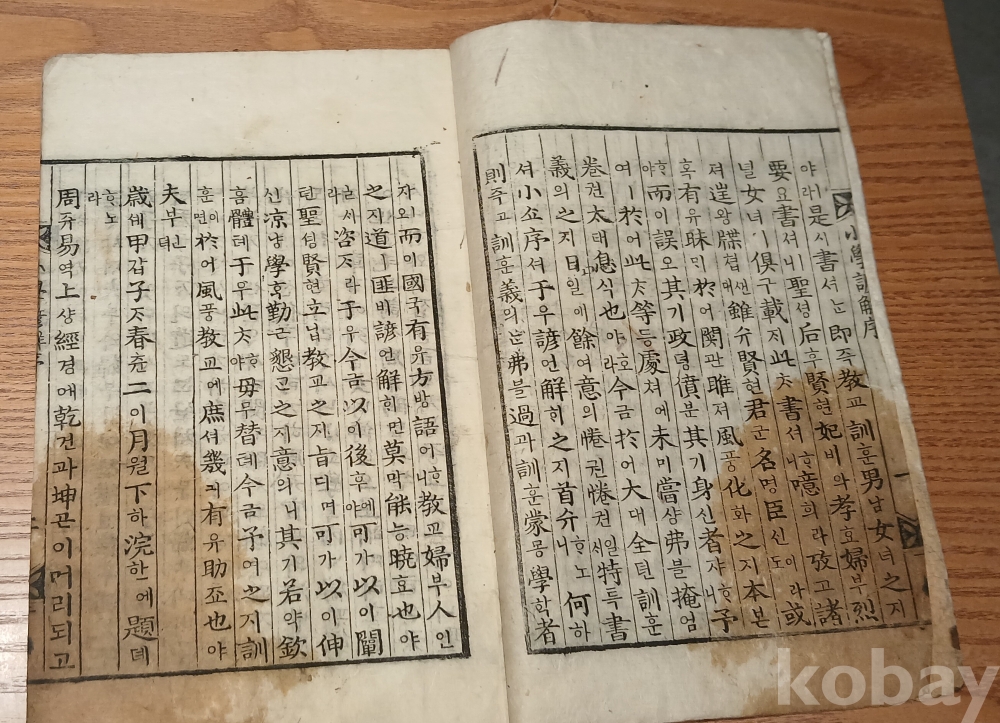 小學諺解序
一
야ㅣ라是시書셔ᄂᆞᆫ即즉敎교訓훈男남女녀之지
要요書셔ㅣ니聖셩后후賢현妃비와孝효婦부烈
녈女녀ㅣ俱구載ᄌᆡ此ᄎᆞ書셔ᄒᆞ니噫희라攷고諸
져逞왕牒쳡애雖슈賢현君군名명臣신도이라或
혹有유昧ᄆᆡ於어關관雎져風풍化화之지本본
ᄒᆞ야而이誤오其기政졍僨분其기身신者쟈ᄒᆞ니予
여ㅣ於어此ᄎᆞ等등處쳐에未미嘗샹弗블掩엄
卷권太태息식也야ᄒᆞ노라今금於어大대全뎐訓훈
義의之지日일에餘여意의惓권惓권ᄒᆞᆯᄉᆡ特특書
셔小쇼序셔于우諺언解ᄒᆡ之지首슈ᄒᆞ노니何하
則즉고訓훈義의ᄂᆞᆫ弗블過과訓훈蒙몽學ᄒᆞᆨ者
쟈외而이國국有유方방語어ᄒᆞ니敎교婦부人인
之지道도ㅣ匪비諺언解ᄒᆡ면莫막能능曉효也야
ㅣ라咨ᄌᆞ于우今금以이後후에야可가以이闡
텬聖셩賢현立닙敎교之지旨디며可가以이伸
신凉냥學ᄒᆞᆨ勤근懇ᄀᆞᆫ之지意의니其기若약欽
흠體톄于우此ᄎᆞᄒᆞ야毋무替톄今금予여之지訓
훈이면於어風풍敎교에庶셔幾긔有유助조也야
夫부ᅟᅵᆫ뎌
歲셰甲갑子ᄌᆞ春츈二이月월下하浣한에題뎨
ᄒᆞ노라
周쥬易역上샹經경애乾건과坤곤이머리되고
kobay